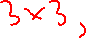 3×3,